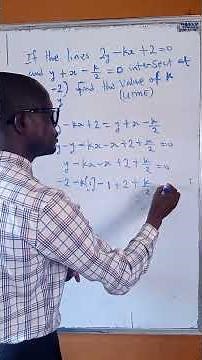 If the lines 2y - kx + 2 = 0
and y + x - k/2 = 0 intersect at
-2) find the value of k
(UTME)
- kx + 2 = y + x - k/2
- y - kx - x + 2 + k/2 = 0
y - kx - x + 2 + k/2 = 0
-2 - k(1) - 1 + 2 + k/2